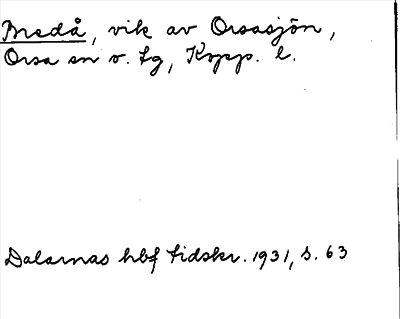 Bredå, vik av Orsasjön,
Orsa sn v. Lg, Kopp. l.
Dalarnas hbf tidskr. 1931, s. 63